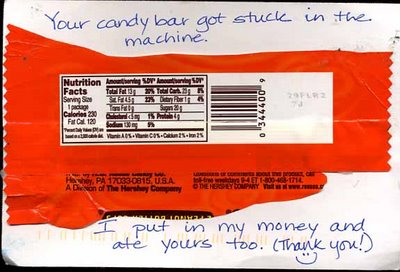 Your candy bar got stuck in the
machine.
Nutrition Facts
Serving Size
1 package
Calories 230
Fat Cal. 120
*Percent Daily Values (DV) are
based on a 2,000 calorie diet.
Amount/serving %DV* Amount/serving %DV*
Total Fat 13g 20% Total Carb. 25g 8%
Sat. Fat 4.5g 23% Dietary Fiber 1g 4%
Trans Fat 0g Sugars 20g
Cholesterol <5mg 1% Protein 4g
Sodium 130mg 5%
Vitamin A 0% • Vitamin C 0% • Calcium 2% • Iron 2%
Hershey, PA 17033-0815, U.S.A.
A Division of The Hershey Company
Questions or comments about this product, call
toll-free weekdays 9-4 ET 1-800-468-1714.
© THE HERSHEY COMPANY Visit us at
I put in my money and
ate yours too. (Thank you!)